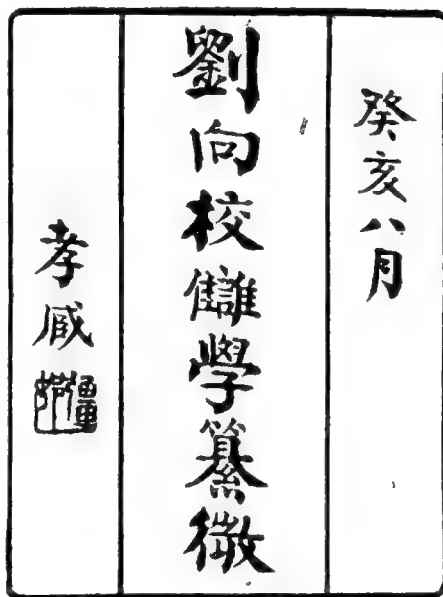 癸亥八月
劉向校讎學纂微
孝臧